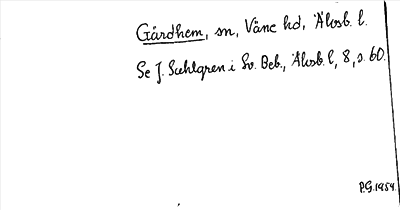 Gårdhem, sn, Väne hd, Älvsb. l.
Se J. Sahlgren i Sv. Beb., Älvsb. l, 8, s. 60.
P.G. 1954.